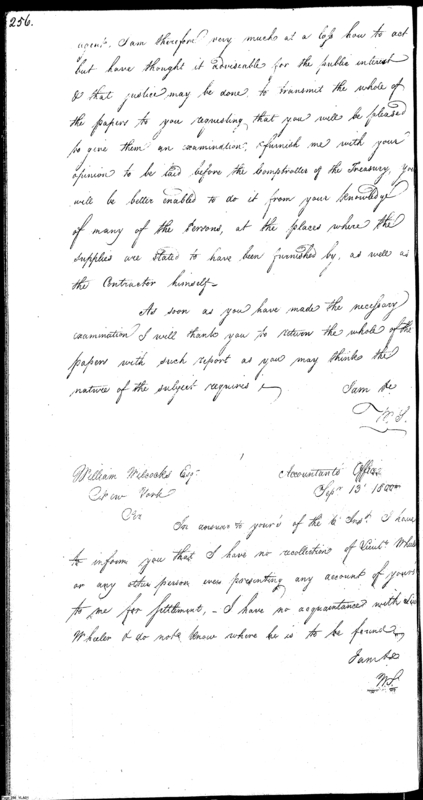 256.
agent. I am therefore very much at a loss how to act
but have thought it adviseable for the public interest
& that justice may be done, to transmit the whole of
the papers to you requesting that you will be pleased
to give them an examination, & furnish me with your
opinion to be laid before the Comptroller of the Treasury, you
will be better enabled to do it from your knowledge
of many of the Persons, at the places where the
supplies are stated to have been furnished by, as well as
the Contractor himself-
As soon as you have made the necessary
examination I will thank you to return the whole of the
papers with such report as you may think the
nature of the subject requires
I am &c
W. S.
William Wilcocks Esqr
Accountants Office
New York
Sepr 13 1800
Sir
In answer to your's of the 6 Inst. I have
to inform you that I have no recollection of Lieut. Wheeler
or any other person ever presenting any account of yours
to me for settlement, - I have no acquaintance with
Wheeler & do not know where he is to be found
I am &c
W.S.